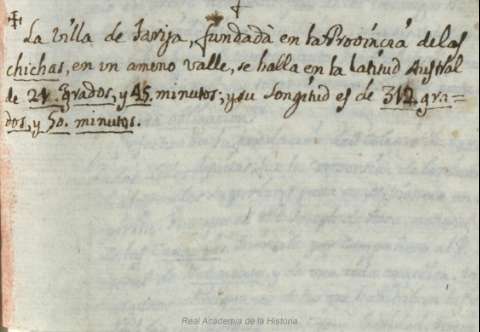 La Villa de Tarija, fundada en la Provincia de los
chichas, en un ameno valle, se halla en la latitud Austral
de 21. grados, y 45. minutos; y su Longitud es de 312. gra=
dos, y 50. minutos.
Real Academia de la Historia